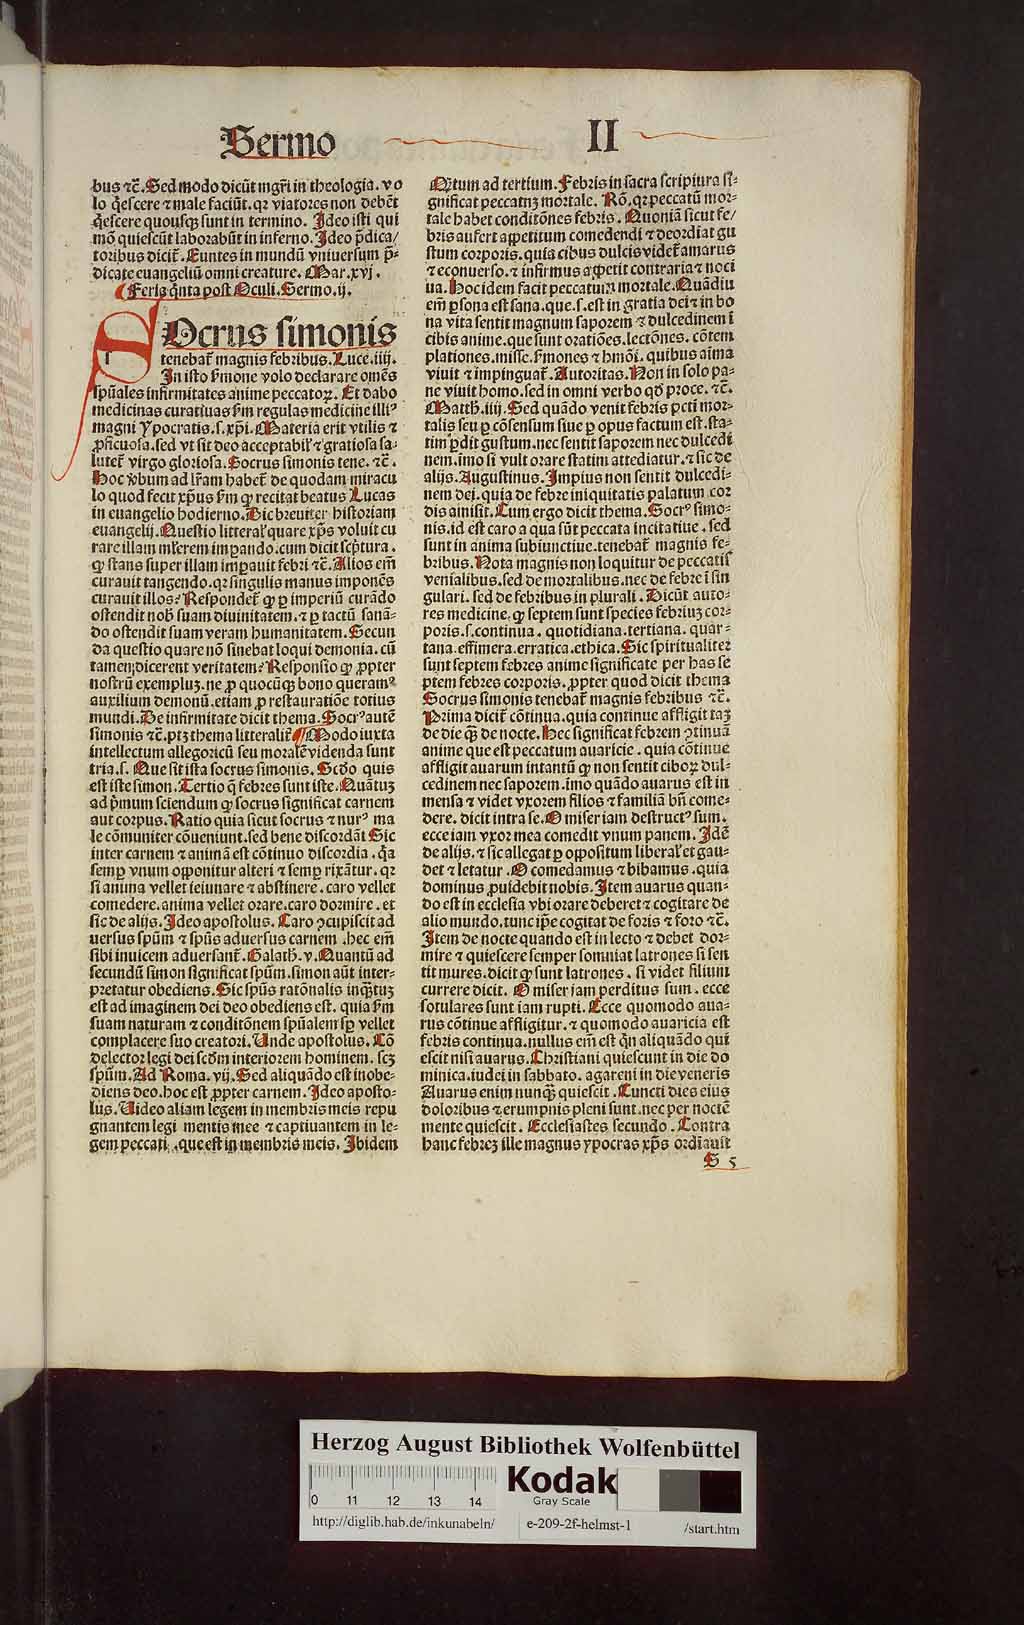 Sermo II
bus ⁊c̃. Sed modo dicũt mgr̃i in theologia. vo
lo q̃escere ⁊ male faciũt. qr viatores non debẽt
q̃escere quousq̷ sunt in termino. Ideo isti qui
mõ quiescũt laborabũt in inferno. Ideo p̃dica/
toribus dicit᷑. Euntes in mundũ vniuersum p̃-
dicate euangeliũ omni creature. Mar. xvj.
Feria q̃nta post Oculi. Sermo .ij.
SOcrus simonis
tenebat᷑ magnis febribus. Luce. iiij.
In isto s̃mone volo declarare om̃es
sp̃uales infirmitates anime peccatoꝝ. Et dabo
medicinas curatiuas s̃m regulas medicine illiꝰ
magni ypocratis. s. xp̃i. Materia erit vtilis ⁊
ꝓficuosa. sed vt sit deo acceptabił ⁊ gratiosa sa-
lutet᷑ virgo gloriosa. Socrus simonis tene. ⁊c̃.
Hoc ꝟbum ad lr̃am habet᷑ de quodam miracu
lo quod fecit xp̃us s̃m ꝙ recitat beatus Lucas
in euangelio hodierno. Dic breuiter historiam
euangelij. Questio litteral᷑ quare xp̃s voluit cu
rare illam ml̃erem imꝑando. cum dicit scp̃tura.
ꝙ stans super illam imꝑauit febri ⁊c̃. Alios em̃
curauit tangendo. qr singulis manus imponẽs
curauit illos? Respondet᷑ ꝙ ꝑ imperiũ curãdo
ostendit nob̃ suam diuinitatem. ⁊ ꝑ tactũ sanã-
do ostendit suam veram humanitatem. Secun
da questio quare nõ sinebat loqui demonia. cũ
tamen dicerent veritatem? Responsio ꝙ ꝓpter
nostrũ exempluꝫ. ne ꝓ quocũq̷ bono queramꝰ
auxilium demonũ. etiam ꝓ restauratiõe totius
mundi. De infirmitate dicit thema. Socrꝰ autẽ
simonis ⁊c̃. ptꝫ thema litteralit᷑ Modo iuxta
intellectum allegoricũ seu moralẽ videnda sunt
tria. s. Que sit ista socrus simonis. Scd̃o quis
est iste simon. Tertio q̃ febres sunt iste. Quãtuꝫ
ad p̃mum sciendum ꝙ socrus significat carnem
aut corpus. Ratio quia sicut socrus ⁊ nurꝰ ma
le cõmuniter cõueniunt. sed bene discordãt Sic
inter carnem ⁊ animã est cõtinuo discordia. q̃a
semꝑ vnum opponitur alteri ⁊ semꝑ rixãtur. qr
si anima vellet ieiunare ⁊ abstinere. caro vellet
comedere. anima vellet orare. caro dormire. et
sic de alijs. Ideo apostolus. Caro ꝯcupiscit ad
uersus sp̃um ⁊ sp̃us aduersus carnem. hec em̃
sibi inuicem aduersant᷑. Galath. v. Quantũ ad
secundũ simon significat sp̃um. simon aũt inter-
pretatur obediens. Sic sp̃us ratõnalis inq̃tuꝫ
est ad imaginem dei deo obediens est. quia s̃m
suam naturam ⁊ conditõnem sp̃ualem sꝑ vellet
complacere suo creatori. Unde apostolus. Cõ
delector legi dei scd̃m interiorem hominem. scꝫ
sp̃um. Ad Roma. vij. Sed aliquãdo est inobe-
diens deo. hoc est ꝓpter carnem. Ideo aposto-
lus. Uideo aliam legem in membris meis repu
gnantem legi mentis mee ⁊ captiuantem in le-
gem peccati. que est in membris meis. Ibidem
Q̃tum ad tertium. Febris in sacra scriptura si-
gnificat peccatuꝫ mortale. Rõ. qr peccatũ mor-
tale habet conditõnes febris. Quoniã sicut fe/
bris aufert appetitum comedendi ⁊ deordiat gu
stum corporis. quia cibus dulcis videt᷑ amarus
⁊ econuerso. ⁊ infirmus appetit contraria ⁊ noci
ua. Hoc idem facit peccatum mortale. Quãdiu
em̃ ꝑsona est sana. que. s. est in gratia dei ⁊ in bo
na vita sentit magnum saporem ⁊ dulcedinem ĩ
cibis anime. que sunt oratiões. lectões. cõtem
plationes. misse. s̃mones ⁊ hmõi. quibus aĩma
viuit ⁊ impinguat᷑. Autoritas. Non in solo pa-
ne viuit homo. sed in omni verbo qd̃ proce. ⁊c̃.
Matth. iiij. Sed quãdo venit febris pcti mor-
talis seu ꝑ cõsensum siue ꝑ opus factum est. sta-
tim ꝑdit gustum. nec sentit saporem nec dulcedi
nem. imo si vult orare statim attediatur. ⁊ sic de
alijs. Augustinus. Impius non sentit dulcedi-
nem dei. quia de febre iniquitatis palatum cor
dis amisit. Cum ergo dicit thema. Socrꝰ simo-
nis. id est caro a qua sũt peccata incitatiue. sed
sunt in anima subiunctiue. tenebat᷑ magnis fe-
bribus. Nota magnis non loquitur de peccatis
venialibus. sed de mortalibus. nec de febre ĩ sin
gulari. sed de febribus in plurali. Dicũt auto-
res medicine. ꝙ septem sunt species febriuꝫ cor-
poris. s. continua. quotidiana. tertiana. quar-
tana. effimera. erratica. ethica. Sic spiritualiter
sunt septem febres anime significate per has se
ptem febres corporis. ꝓpter quod dicit thema
Socrus simonis tenebat᷑ magnis febribus ⁊c̃.
Prima dicit᷑ cõtinua. quia continue affligit taꝫ
de die q̃ de nocte. Hec significat febrem ꝯtinuã
anime que est peccatum auaricie. quia cõtinue
affligit auarum intantũ ꝙ non sentit ciboꝝ dul-
cedinem nec saporem. imo quãdo auarus est in
mensa ⁊ videt vxorem filios ⁊ familiã bñ come-
dere. dicit intra se. O miser iam destructꝰ sum.
ecce iam vxor mea comedit vnum panem. Idẽ
de alijs. ⁊ sic allegat ꝑ oppositum liberal᷑ et gau-
det ⁊ letatur. O comedamus ⁊ bibamus. quia
dominus ꝓuidebit nobis. Item auarus quan-
do est in ecclesia vbi orare deberet ⁊ cogitare de
alio mundo. tunc ip̃e cogitat de foris ⁊ foro ⁊c̃.
Item de nocte quando est in lecto ⁊ debet dor-
mire ⁊ quiescere semper somniat latrones si sen
tit mures. dicit ꝙ sunt latrones. si videt filium
currere dicit. O miser iam perditus sum. ecce
sotulares sunt iam rupti. Ecce quomodo aua-
rus cõtinue affligitur. ⁊ quomodo auaricia est
febris continua. nullus em̃ est q̃n aliquãdo qui
escit nisi auarus. Christiani quiescunt in die do
minica. iudei in sabbato. agareni in die veneris
Auarus enim nunq̃ quiescit. Cuncti dies eius
doloribus ⁊ erumpnis pleni sunt. nec per noctẽ
mente quiescit. Ecclesiastes secundo. Contra
hanc febreꝫ ille magnus ypocras xp̃s ordiauit
S 5
Herzog August Bibliothek Wolfenbüttel
Kodak
Gray Scale
0 11 12 13 14
http://diglib.hab.de/inkunabeln/ e-209-2f-helmst-1 /start.htm